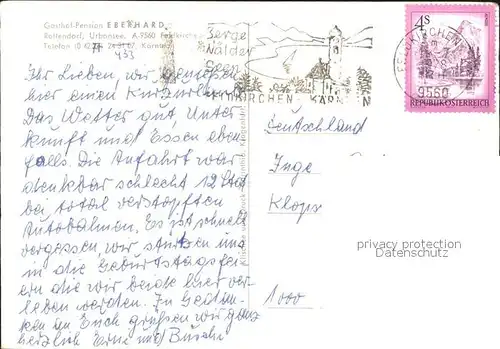 Gasthof-Pension EBERHARD
Rottendorf, Urbansee, A-9560 Feldkirchen
Telefon (0 42 77) Kärnten
433
Berge
Wälder
Seen
FELDKIRCHEN KÄRNTEN
4S
REPUBLIK ÖSTERREICH
9560
Ihr Lieben, wir genießen
hier einen Kurzurlaub.
Das Wetter gut, Unter
kunft und Essen eben
falls. Die Anfahrt war
denkbar schlecht 12 Std
bei total verstopften
Autobahnen. Es ist schnell
vergessen, wir stürzen uns
in die Geburtstagsfei
ern die wir beide hier ver
leben werden. In Gedan-
ken an Euch grüßen wir ganz
herzlich Erni und
Deutschland
Inge
Klops
1000
privacy protection
Datenschutz